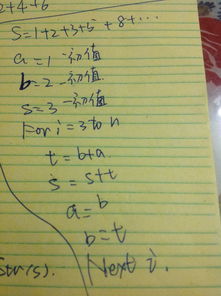 2+4+6
S=1+2+3+5+8+...
a=1 初值
b=2 初值
s=3 初值
For i=3 to n
t=b+a
s=s+t
a=b
b=t
Str(s). Next i.